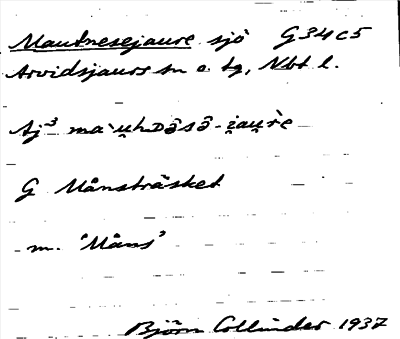 Mautnesejaure sjö G34c5
Arvidsjaurs sn o. tg, Nbt l.
Aj³ ma·u̯hDə̂sə̂-i̯au̯rè
G Månsträsket
m. "Måns"
Björn Collinder 1937